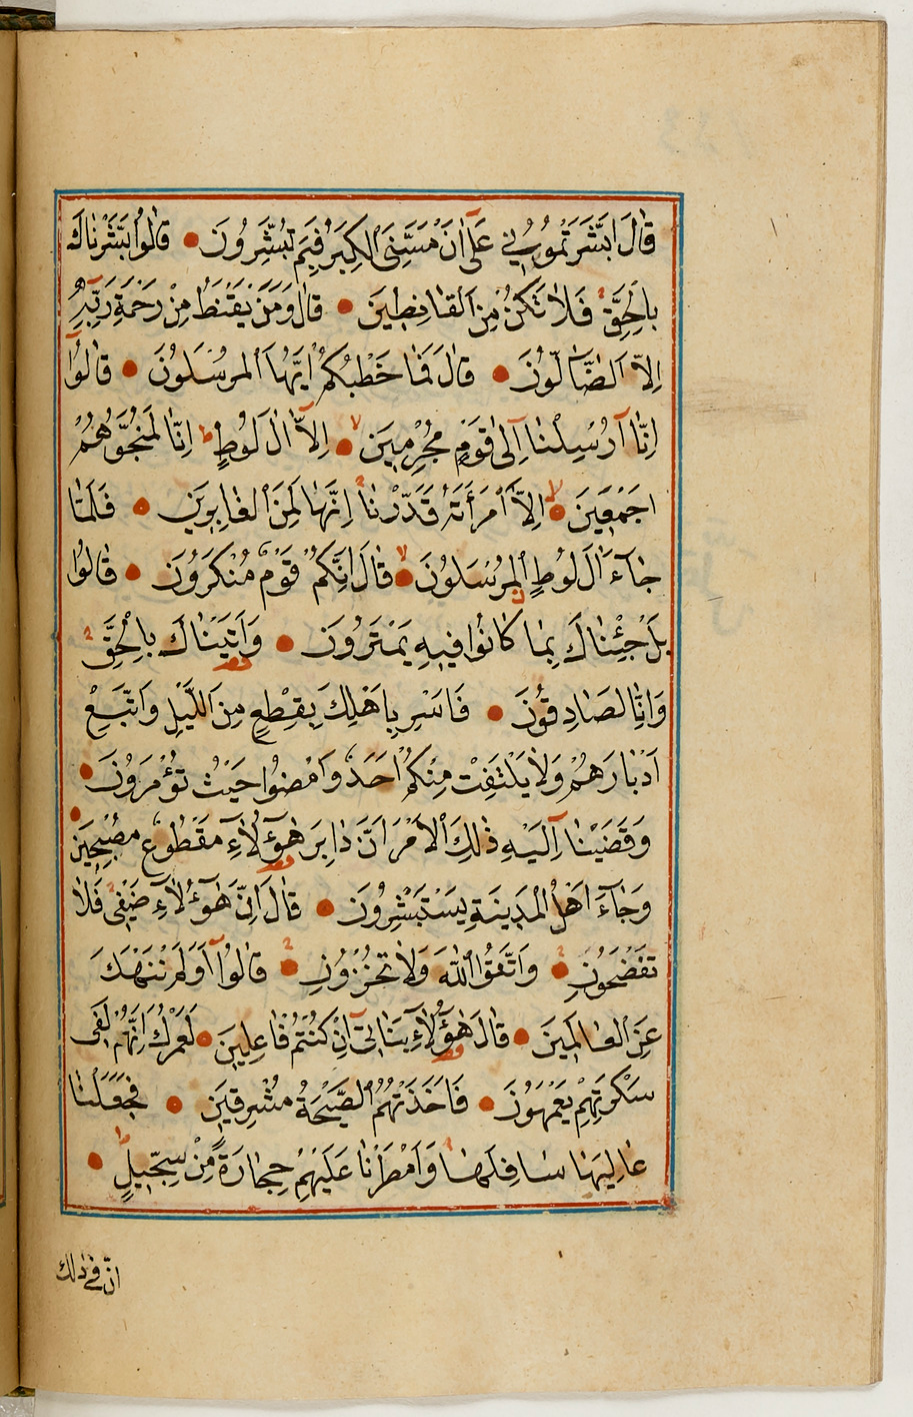 قَالَ اَبَشَّرْتُمُوُنٖي عَلٰٓى اَنْ مَسَّنِىَ الْكِبَرُ فَبِمَ تُبَشِّرُونَ ● قَالُوا بَشَّرْنَاكَ
بِالْحَقِّ فَلَا تَكُنْ مِنَ الْقَانِطٖينَ ● قَالَ وَمَنْ يَقْنَطُ مِنْ رَحْمَةِ رَبِّهٖ
اِلَّا الضَّآلُّونَ ● قَالَ فَمَا خَطْبُكُمْ اَيُّهَا الْمُرْسَلُونَ ● قَالُوٓا
اِنَّآ اُرْسِلْنَآ اِلٰى قَوْمٍ مُجْرِمٖينَ ● اِلَّآ اٰلَ لُوطٍ ط اِنَّا لَمُنَجُّوهُمْ
اَجْمَعٖينَ ● اِلَّا امْرَاَتَهُ قَدَّرْنَآ اِنَّهَا لَمِنَ الْغَابِرٖينَ ● فَلَمَّا
جَآءَ اٰلَ لُوطٍ الْمُرْسَلُونَ ● قَالَ اِنَّكُمْ قَوْمٌ مُنْكَرُونَ ● قَالُوا
بَلْ جِئْنَاكَ بِمَا كَانُوا فٖيهِ يَمْتَرُونَ ● وَاَتَيْنَاكَ بِالْحَقِّ
وَاِنَّا لَصَادِقُونَ ● فَاَسْرِ بِاَهْلِكَ بِقِطْعٍ مِنَ اللَّيْلِ وَاتَّبِعْ
اَدْبَارَهُمْ وَلَا يَلْتَفِتْ مِنْكُمْ اَحَدٌ وَامْضُوا حَيْثُ تُؤْمَرُونَ ●
وَقَضَيْنَآ اِلَيْهِ ذٰلِكَ الْاَمْرَ اَنَّ دَابِرَ هٰٓؤُلَآءِ مَقْطُوعٌ مُصْبِحٖينَ ●
وَجَآءَ اَهْلُ الْمَدٖينَةِ يَسْتَبْشِرُونَ ● قَالَ اِنَّ هٰٓؤُلَآءِ ضَيْفٖى فَلَا
تَفْضَحُونِ ● وَاتَّقُوا اللّٰهَ وَلَا تُخْزُونِ ● قَالُوٓا اَوَلَمْ نَنْهَكَ
عَنِ الْعَالَمٖينَ ● قَالَ هٰٓؤُلَآءِ بَنَاتٖىٓ اِنْ كُنْتُمْ فَاعِلٖينَ ● لَعَمْرُكَ اِنَّهُمْ لَفٖى
سَكْرَتِهِمْ يَعْمَهُونَ ● فَاَخَذَتْهُمُ الصَّيْحَةُ مُشْرِقٖينَ ● فَجَعَلْنَا
عَالِيَهَا سَافِلَهَا وَاَمْطَرْنَا عَلَيْهِمْ حِجَارَةً مِنْ سِجّٖيلٍ ●
انّ فى ذلك